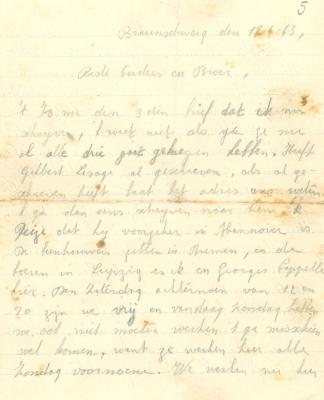 5
Braunschweig den 18-6-63,
Beste Ouders en Broer,
't Zo nu den 3den brief dat ik nu
schrijven, 'k weet niet als gije ze nu
al alle drie goet gekregen hebben. Heeft
Gilbert Lesage al geschreven, als al ge-
schreven heeft laat het adres ons weten
'k ga dan eens schrijven naar hem 'k
dat hij vroeger in Hannover is
De zitten in Bremen, en de
boeren in Leipzig en ik en Georges Cappelle
hier. Den Zaterdag achternoen van 12 en
zijn we vrij en vandaag Zondag hebben
we ook niet moeten werken 't ga misschien
wel komen, want ze werken hier alle
Zondag voornoene. We werken nu hier